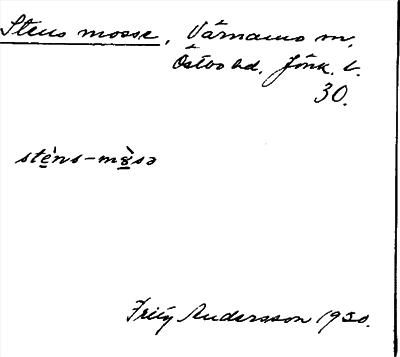 Stens mosse, Värnamo m,
Östbo hd. Jönk. l.
30.
stè̱ns-mɷ̱̀sə
Fritz Andersson 1930.